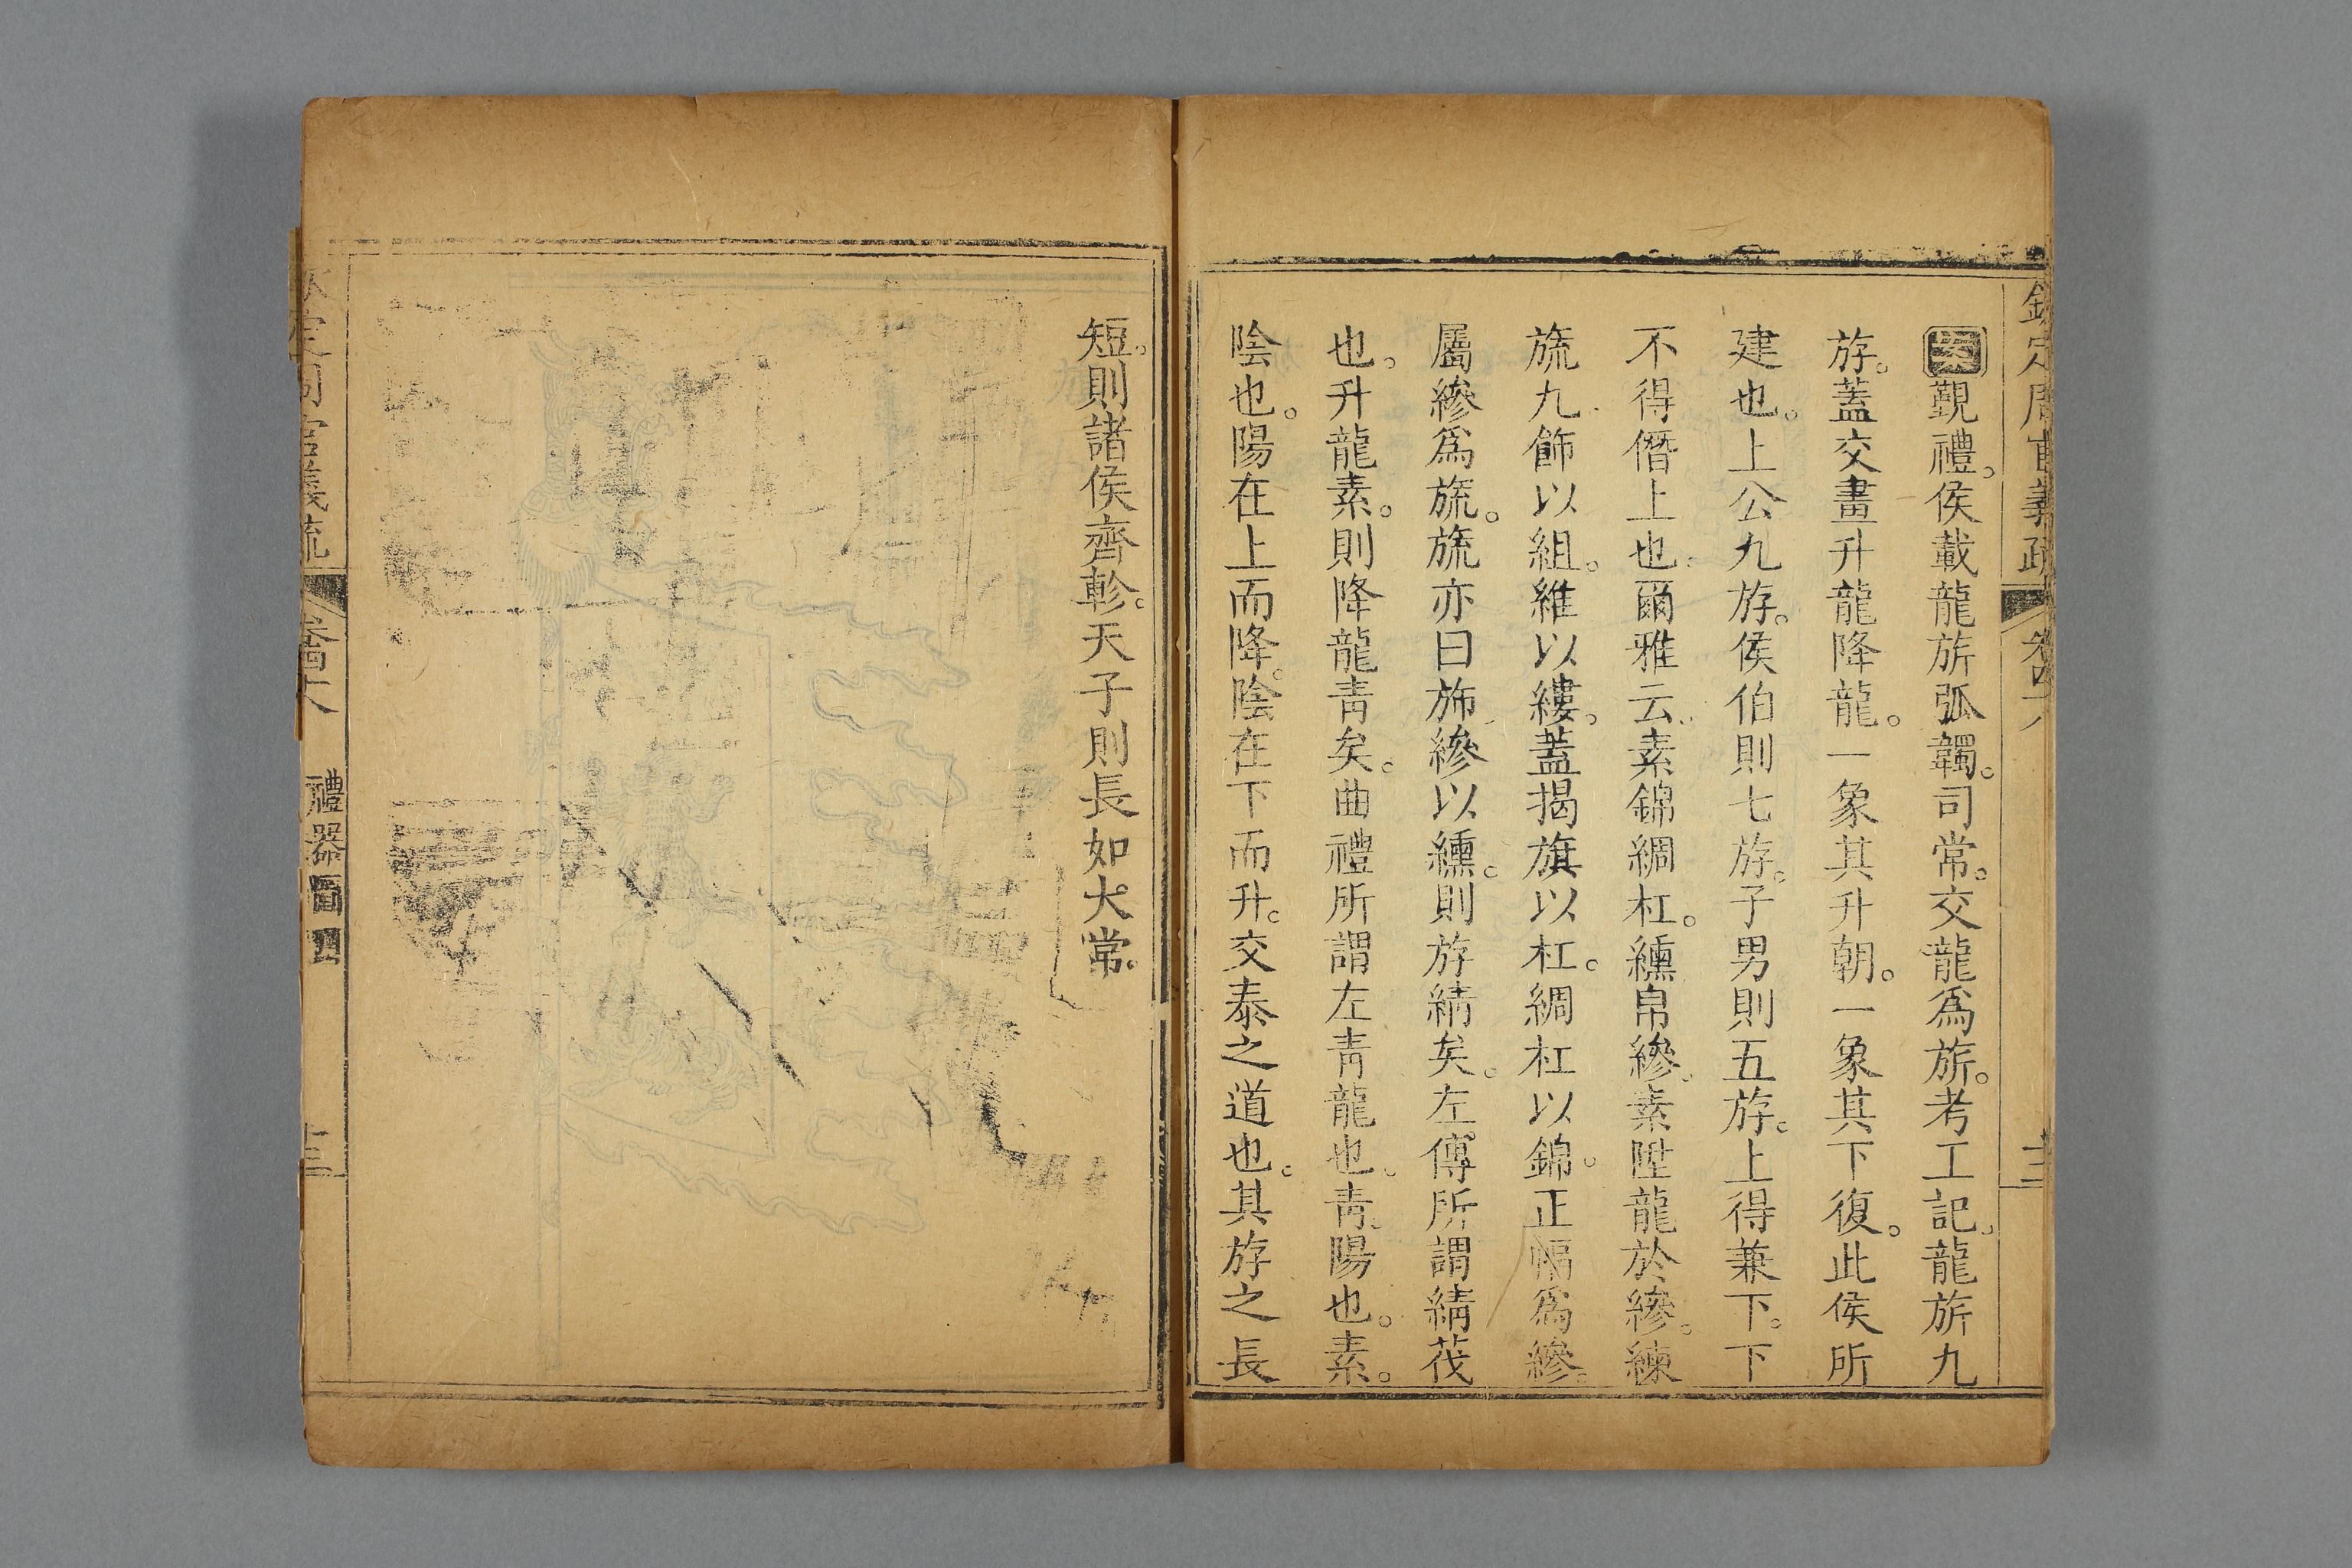 欽定周官義疏 卷四十八 十二
案覲禮。侯載龍旂弧韣。司常。交龍爲旂。考工記。龍旂九
斿。蓋交畫升龍降龍。一象其升朝。一象其下復。此侯所
建也。上公九斿。侯伯則七斿。子男則五斿。上得兼下。下
不得僭上也。爾雅云。素錦綢杠。纁帛縿。素陞龍於縿。練
旒九。飾以組。維以縷。蓋揭旗以杠。綢杠以錦。正幅爲縿。
屬縿爲旒。旒亦曰斾。縿以纁。則斿綪矣。左傳所謂綪茷
也。升龍素。則降龍青矣。曲禮所謂左青龍也。青。陽也。素。
陰也。陽在上而降。陰在下而升。交泰之道也。其斿之長
短。則諸侯齊軫。天子則長如大常。
欽定周官義疏 卷四十八 禮器圖四 十三